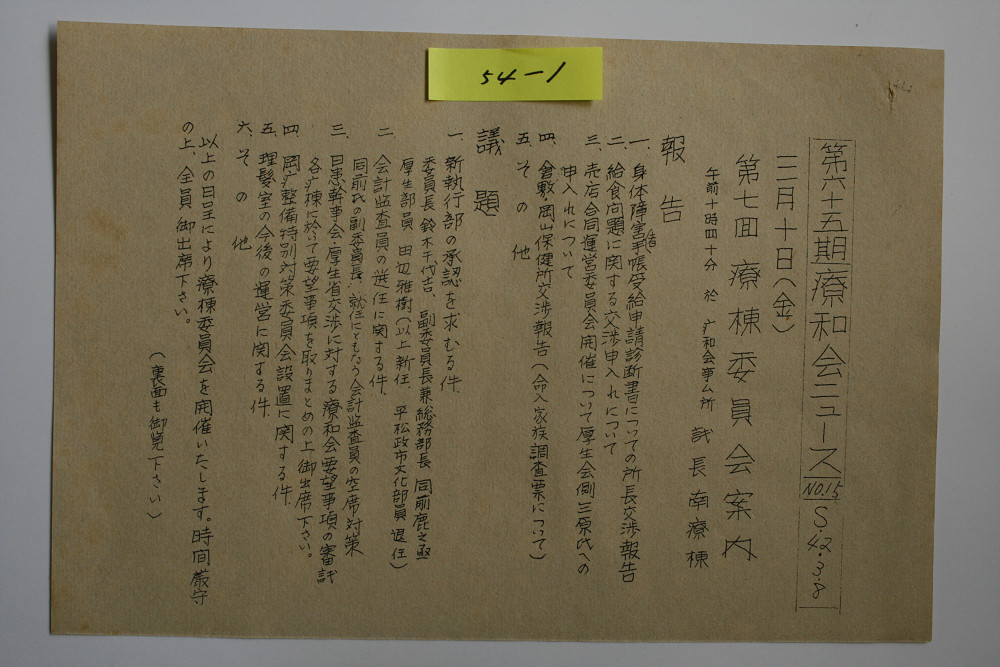 54-1
第六十五期療和会ニュース NO.15 S.42.3.8
三月十日(金)
第七回 療棟委員会案内
午前十時四十分 於 疒和会事ム所 議長 南療棟
報告
一、身体障害者手帳受給申請診断書についての所長交渉報告
二、給食問題に関する交渉申入れについて
三、売店合同運営委員会開催について厚生会側三原氏への
申入れについて
四、倉敷・岡山保健所交渉報告(命入家族調査票について)
五、その他
議題
一、新執行部の承認を求むる件
委員長 鈴木千代吉、副委員長兼総務部長 同前鹿之亟
厚生部員 田辺雅樹(以上新任、平松政市文化部員 退任)
二、会計監査員の選任に関する件
同前氏の副委員長就任にともなう会計監査員の空席対策
三、日患幹事会・厚生省交渉に対する療和会要望事項の審議
各疒棟に於て要望事項を取りまとめの上御出席下さい。
四、岡疒整備特別対策委員会設置に関する件
五、理髪室の今後の運営に関する件
六、その他
以上の日呈により療棟委員会を開催いたします。時間厳守
の上、全員御出席下さい。
(裏面も御覧下さい)